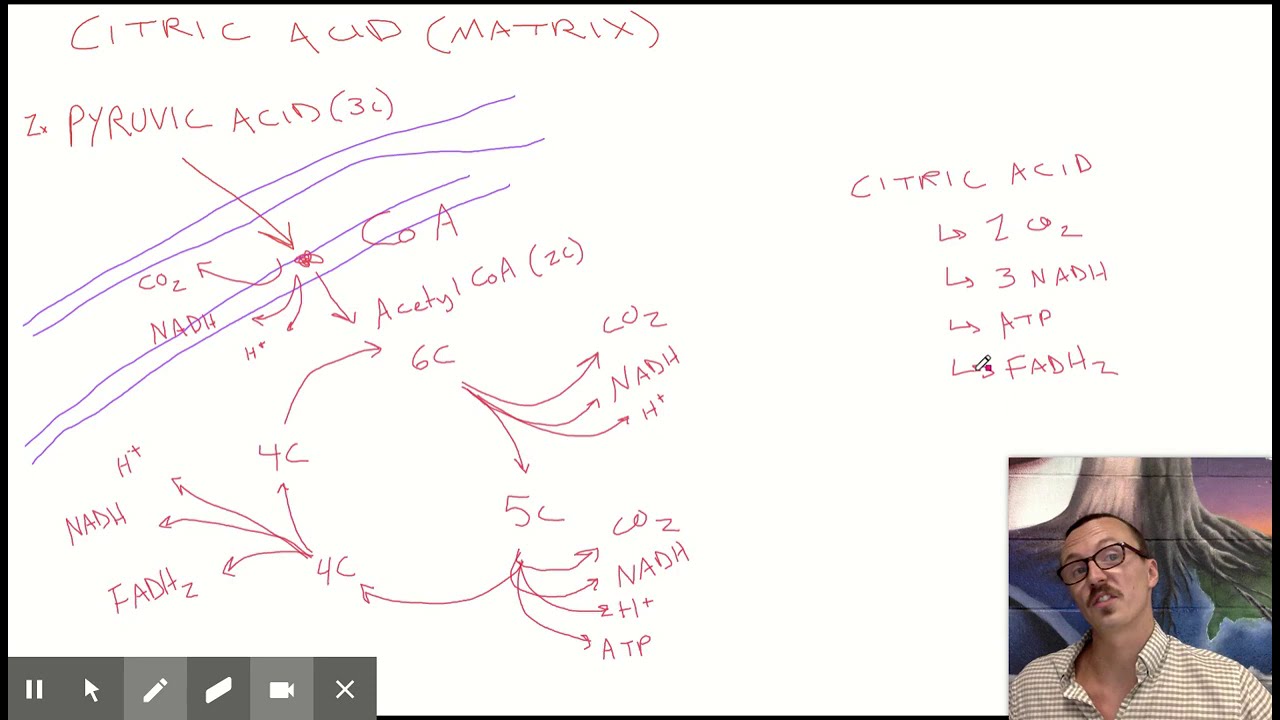 CITRIC ACID (MATRIX)
2x PYRUVIC ACID (3C)
CoA
CO2
NADH
H+
Acetyl CoA (2C)
6C
CO2
NADH
H+
5C
CO2
NADH
2H+
ATP
4C
H+
NADH
FADH2
4C
CITRIC ACID
↳ 2 CO2
↳ 3 NADH
↳ ATP
↳ FADH2